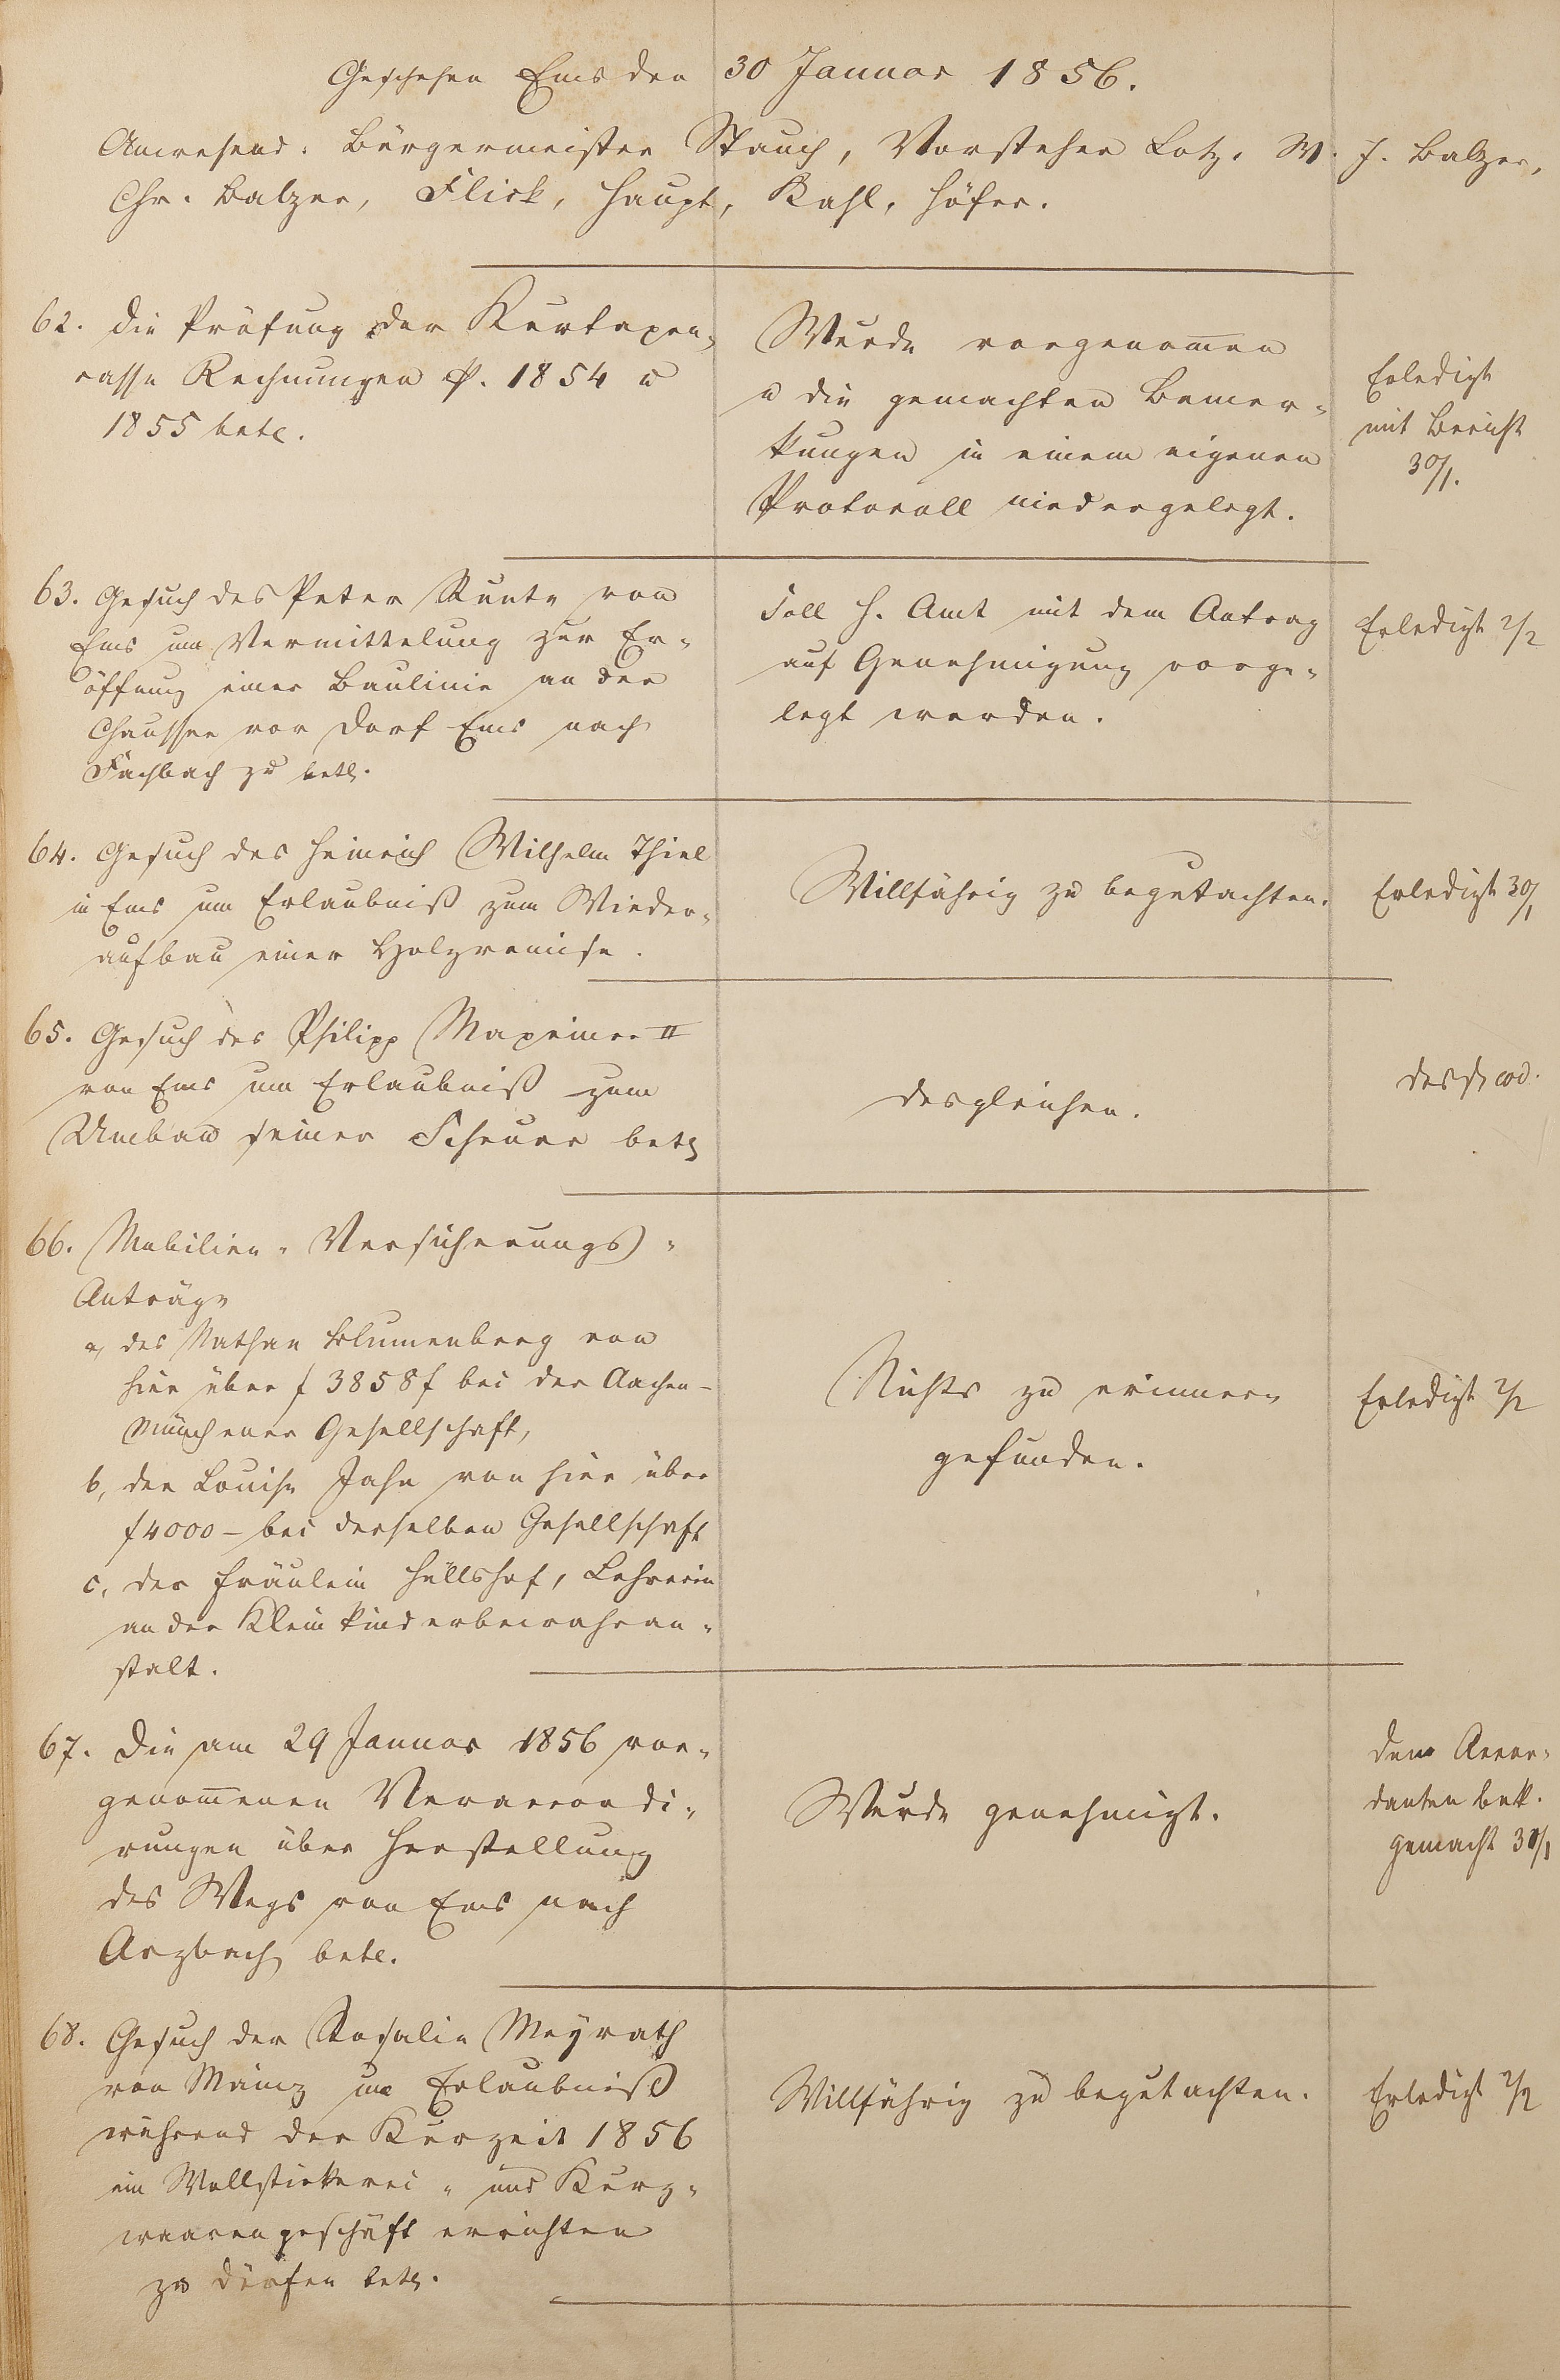 Geschehen Ems den 30 Januar 1856.
Anwesend: Bürgermeister Stauch, Vorsteher Lotz, W. J. Balzer,
Chr. Balzer, Flick, Haupt, Kahl, Höfer.
62. Die Prüfung der Kurtaxen-
casse Rechnungen p. 1854 u
1855 betr.
Wurde vorgenommen
u die gemachten Bemer-
kungen in einem eigenen
Protocoll niedergelegt.
Erledigt
mit Bericht
30/1.
63. Gesuch des Peter Runte von
Ems um Vermittelung zur Er-
öffnung einer Baulinie an der
Chaussee vor Dorf Ems nach
Fachbach zu betr.
Soll H. Amt mit dem Antrag
auf Genehmigung vorge-
legt werden.
Erledigt 2/2
64. Gesuch des Heinrich Wilhelm Thiel
in Ems um Erlaubniß zum Wieder-
aufbau einer Holzremise.
Willfährig zu begutachten.
Erledigt 30/1
65. Gesuch des Philipp Maxeiner II
von Ems um Erlaubniß zum
Umbau seiner Scheuer betr
desgleichen.
66. Mobilien-Versicherungs-
Anträge
a, des Nathan Blumenberg von
hier über f 3858 f bei der Aachen-
Münchener Gesellschaft,
b, der Louise Jahn von hier über
f 4000 – bei derselben Gesellschaft
c, der Fräulein Hüllshof, Lehrerin
an der Kleinkinderbewahran-
stalt.
Nichts zu erinnern
gefunden.
Erledigt 2/2
67. Die am 29 Januar 1856 vor-
genommenen Veraccordi-
rungen über Herstellung
des Wegs von Ems nach
Arzbach betr.
Wurde genehmigt.
dem Accor-
danten bek.
gemacht 30/1
68. Gesuch der Rosalie Meyrath
von Mainz um Erlaubniß
während der Kurzeit 1856
ein Wollstickerei- und Kurz-
waarengeschäft errichten
zu dürfen betr.
Willfährig zu begutachten.
Erledigt 2/2